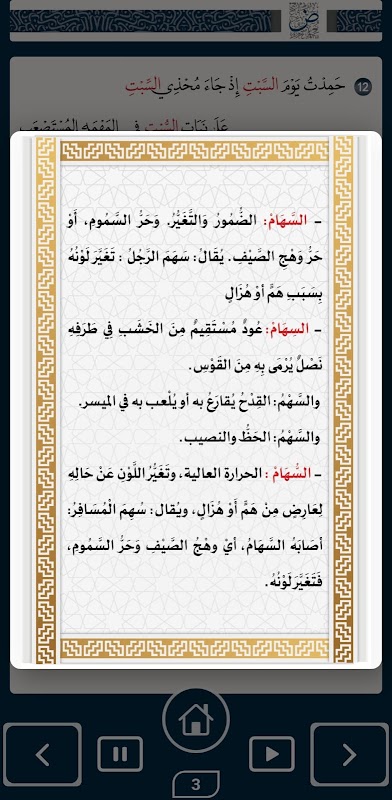 ض
12 حَمِدْتُ يَوْمَ السَّبْتِ إِذْ جَاءَ مُحْذِي السِّبْتِ
السُّبْتِ فِي المَهْمَهِ المُسْتَصْعَبِ
– السَّهَامُ: الضُّمُورُ وَالتَّغَيُّرُ. وَحَرُّ السَّمُومِ، أَوْ
حَرُّ وَهْجِ الصَّيْفِ. يُقَالُ: سَهَمَ الرَّجُلُ : تَغَيَّرَ لَوْنُهُ
بِسَبَبِ هَمٍّ أوْ هُزَالٍ
– السِهَامُ: عُودٌ مُسْتَقِيمٌ مِنَ الخَشَبِ فِي طَرَفِهِ
نَصْلٌ يُرْمَى بِهِ مِنَ القَوْسِ.
والسَّهْمُ: القِدْحُ يُقارَعُ به أو يُلْعب به في الميسر.
والسَّهْمُ: الحَظُّ والنصيب.
– السُّهَامُ : الحرارة العالية، وتَغَيُّرُ اللَّوْنِ عَنْ حَالِهِ
لِعَارِضٍ مِنْ هَمٍّ أَوْ هُزَالٍ، ويُقال: سُهِمَ الْمُسَافِرُ:
أصَابَهُ السَّهَامُ، أيْ وهْجُ الصَّيْفِ وَحَرُّ السَّمُومِ،
فَتَغَيَّرَ لَوْنُهُ.
3